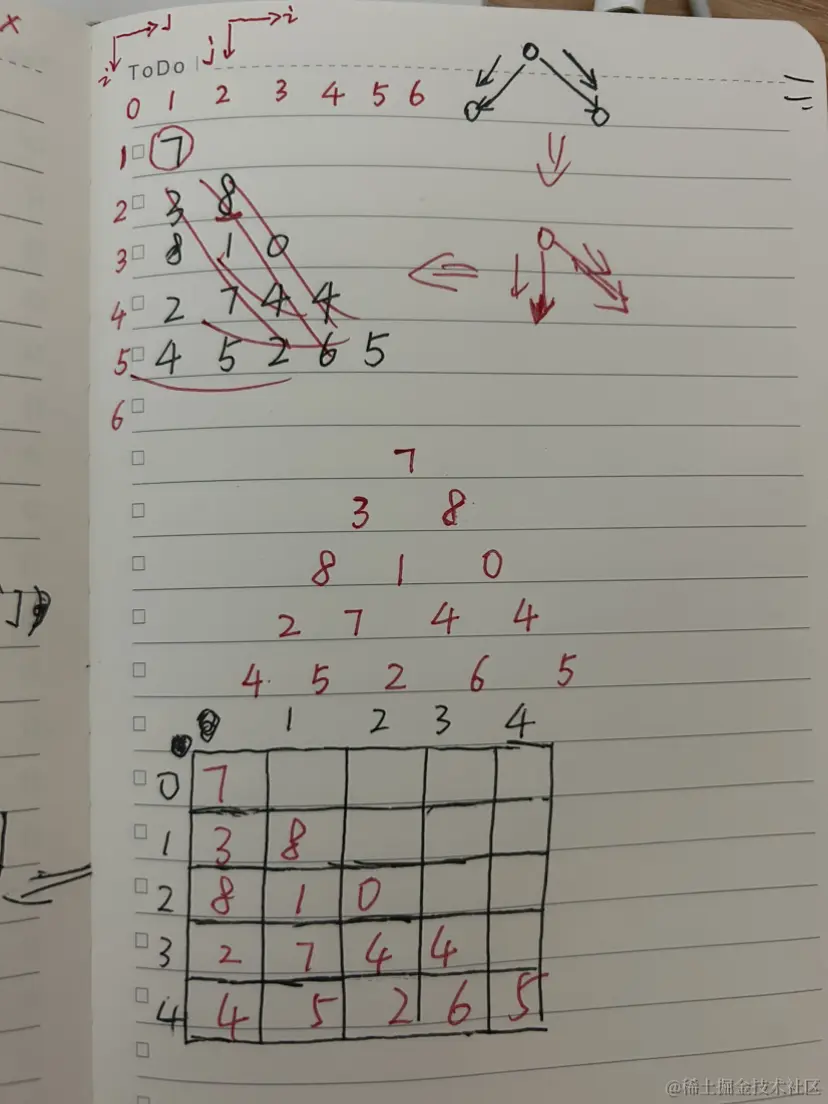 x
i j j i
ToDo
0 1 2 3 4 5 6
1 7
2 3 8
3 8 1 0
4 2 7 4 4
5 4 5 2 6 5
6
7
3 8
8 1 0
2 7 4 4
4 5 2 6 5
0 1 2 3 4
0 7
1 3 8
2 8 1 0
3 2 7 4 4
4 4 5 2 6 5
@稀土掘金技术社区